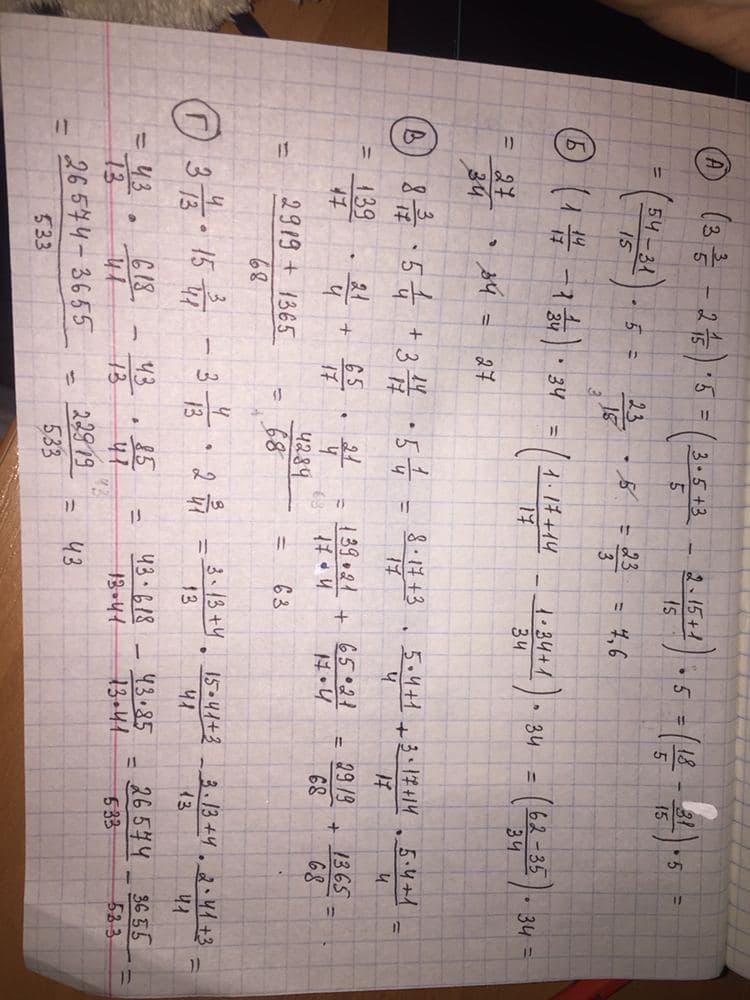 А (3 3/5 - 2 1/15) · 5 = (3·5+3/5 - 2·15+1/15) · 5 = (18/5 - 31/15) · 5 =
= (54-31/15) · 5 = 23/15 3 · 5 = 23/3 = 7,6
Б (1 14/17 - 1 1/34) · 34 = (1·17+14/17 - 1·34+1/34) · 34 = (62-35/34) · 34 =
= 27/34 · 34 = 27
В 8 3/17 · 5 1/4 + 3 14/17 · 5 1/4 = 8·17+3/17 · 5·4+1/4 + 3·17+14/17 · 5·4+1/4 =
= 139/17 · 21/4 + 65/17 · 21/4 = 139·21/17·4 + 65·21/17·4 = 2919/68 + 1365/68 =
= 2919+1365/68 = 4284/68 = 63
Г 3 4/13 · 15 3/41 - 3 4/13 · 2 3/41 = 3·13+4/13 · 15·41+3/41 - 3·13+4/13 · 2·41+3/41 =
= 43/13 · 618/41 - 43/13 · 85/41 = 43·618/13·41 - 43·85/13·41 = 26574/533 - 3655/533 =
= 26574-3655/533 = 22919/533 = 43